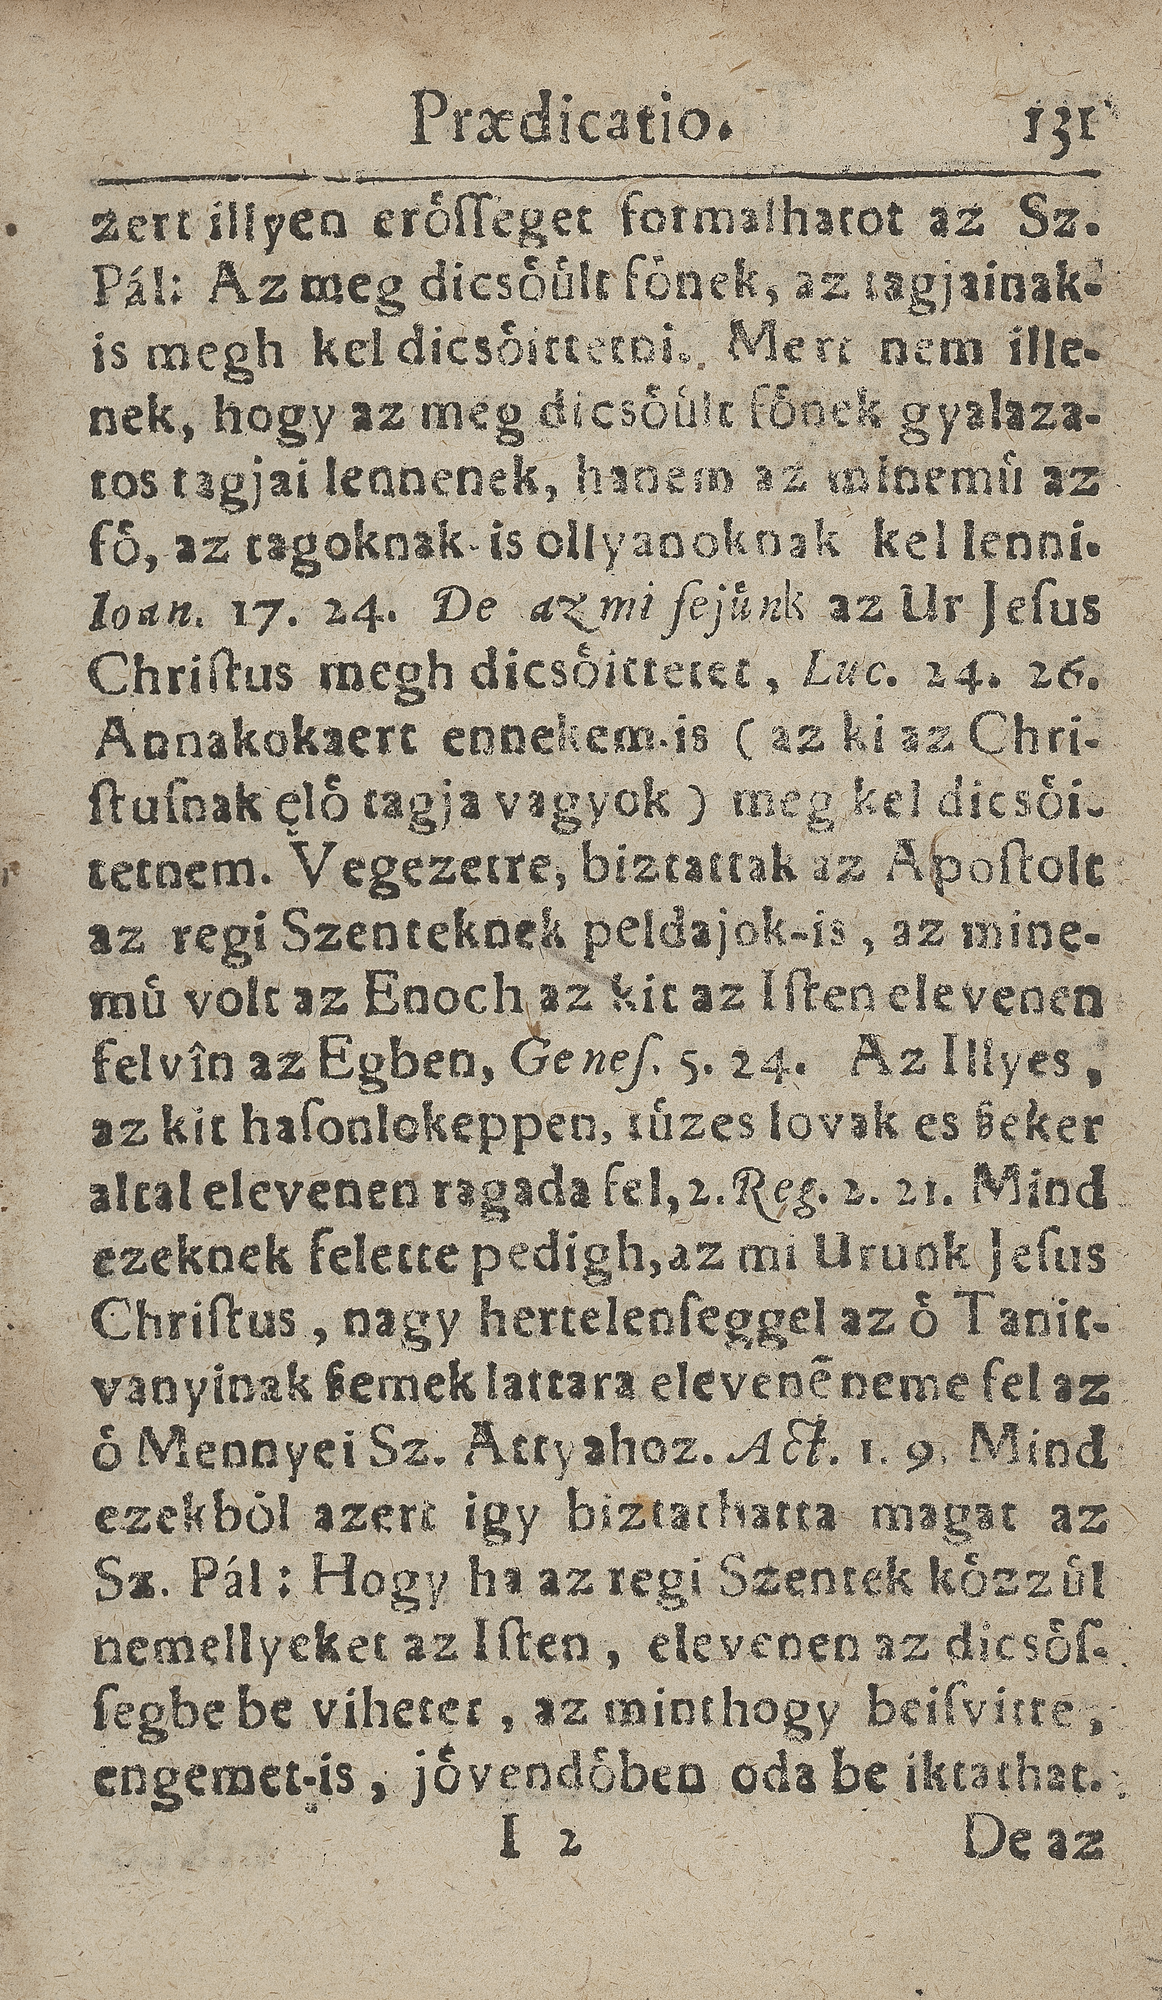 Prædicatio. 131
zert illyen erőſſeget formalhatot az Sz.
Pál: Az meg dicsőűlt főnek, az tagjainak-
is megh kel dicsőittetni. Mert nem ille-
nek, hogy az meg dicsőűlt főnek gyalaza-
tos tagjai lennenek, hanem az minemű az
fő, az tagoknak-is ollyanoknak kel lenni.
Ioan. 17. 24. De az mi fejűnk az Ur Jeſus
Chriſtus megh dicsőittetet, Luc. 24. 26.
Annakokaert ennekem-is (az ki az Chri-
ſtuſnak élő tagja vagyok) meg kel dicsői-
tetnem. Vegezetre, biztattak az Apoſtolt
az regi Szenteknek peldajok-is, az mine-
mű volt az Enoch az kit az Iſten elevenen
felvîn az Egben, Geneſ. 5. 24. Az Illyes,
az kit haſonlokeppen, tűzes lovak es ßeker
altal elevenen ragada fel, 2. Reg. 2. 21. Mind
ezeknek felette pedigh, az mi Urunk Jeſus
Chriſtus, nagy hertelenſeggel az ő Tanit-
vanyinak ßemek lattara elevenē neme fel az
ő Mennyei Sz. Attyahoz. Act. 1. 9. Mind
ezekből azert igy biztathatta magat az
Sz. Pál: Hogy ha az regi Szentek kőzzűl
nemellyeket az Iſten, elevenen az dicsőſ-
ſegbe be vihetet, az minthogy beiſvitte,
engemet-is, jővendőben oda be iktathat.
I 2 De az